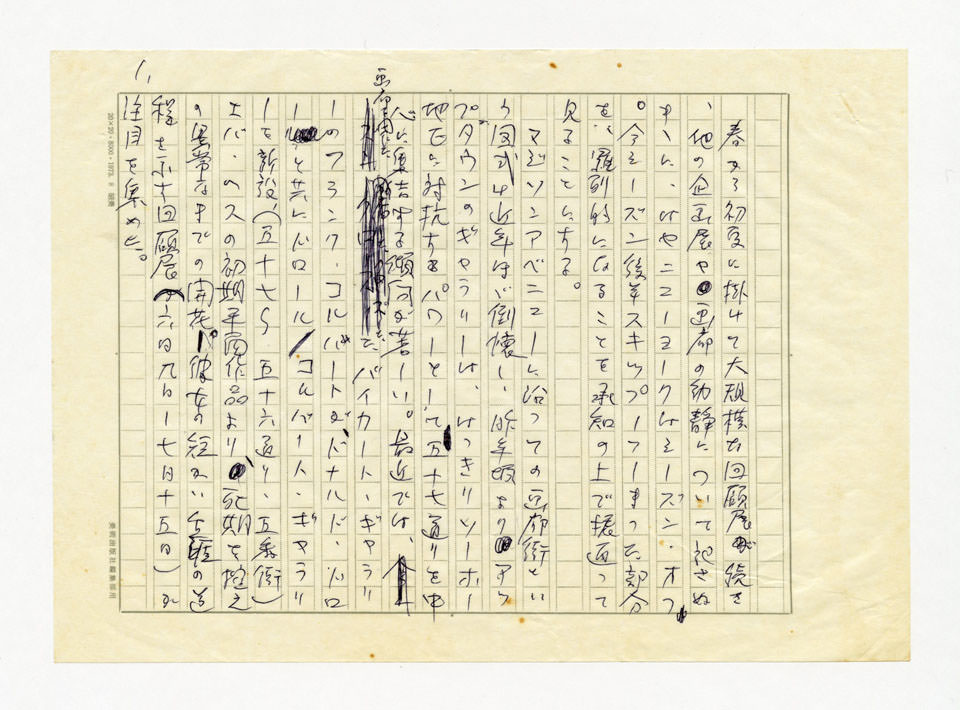 1.
春から初夏に掛けて大規模な回顧展が続き
、他の企画展や画廊の動静について記さぬ
まゝに、はやニューヨークはシーズン・オフ
。今シーズン後半スキップしてしまった部分
を、羅列的になることを承知の上で振返って
見ることにする。
マジソンアベニューに沿っての画廊街とい
う図式は近年ほゞ倒壊し、昨年坂より アッ
プタウンのギャラリーは、はっきりソーホー
地区に対抗するパワーとして五十七通りを中
心に集合する傾向が著しい。最近では、
画廊を開いた
バイカート・ギャラリ
ーのフランク・コルバートがドナルド・ソロ
ールと共にドロール/コルバート・ギャラリ
ーを新設、(五十七丁 五十六通り、五番街)
エバ・ヘスの初期平面作品より 死期を控え
の異常なまでの開花 彼女の短かい生涯の道
程を示す回顧展(六月九日〜七月十五日)が
注目を集めた。
20×20・8000・1973. 8
美術出版社編集部用